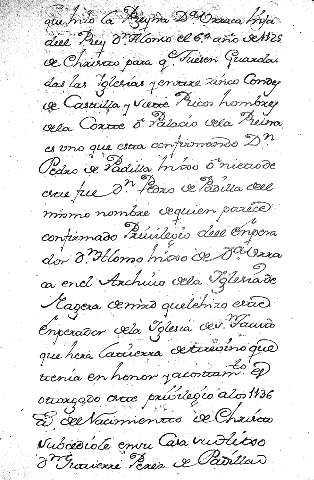 que hizo la Reyna D.ª Urraca hija
del Rey D.n Alonso el 6.º año de 1125
de Christo para q.e fuesen Guarda
das las Iglesias y entre cinco Condes
de Castilla y siete Ricos hombres
de la Corte o Palacio de la Reina
es uno que esta confirmando D.n
Pedro de Padilla hijo o nieto de
este fue D.n Pedro de Padilla del
mismo nombre de quien parece
confirmado Privilegio del Empera
dor D.n Alonso hijo de D.ª Urra
ca en el Archivo de la Iglesia de
Nagera de mro que hizo este
Emperador de la Iglesia de S.
que hera la tierra de que
tenia en honor y
otorgado este privilegio a los 1136
de Nacimiento de Christo
Subcediole en su Casa su hijo
D.n Gutierre Perez de Padilla